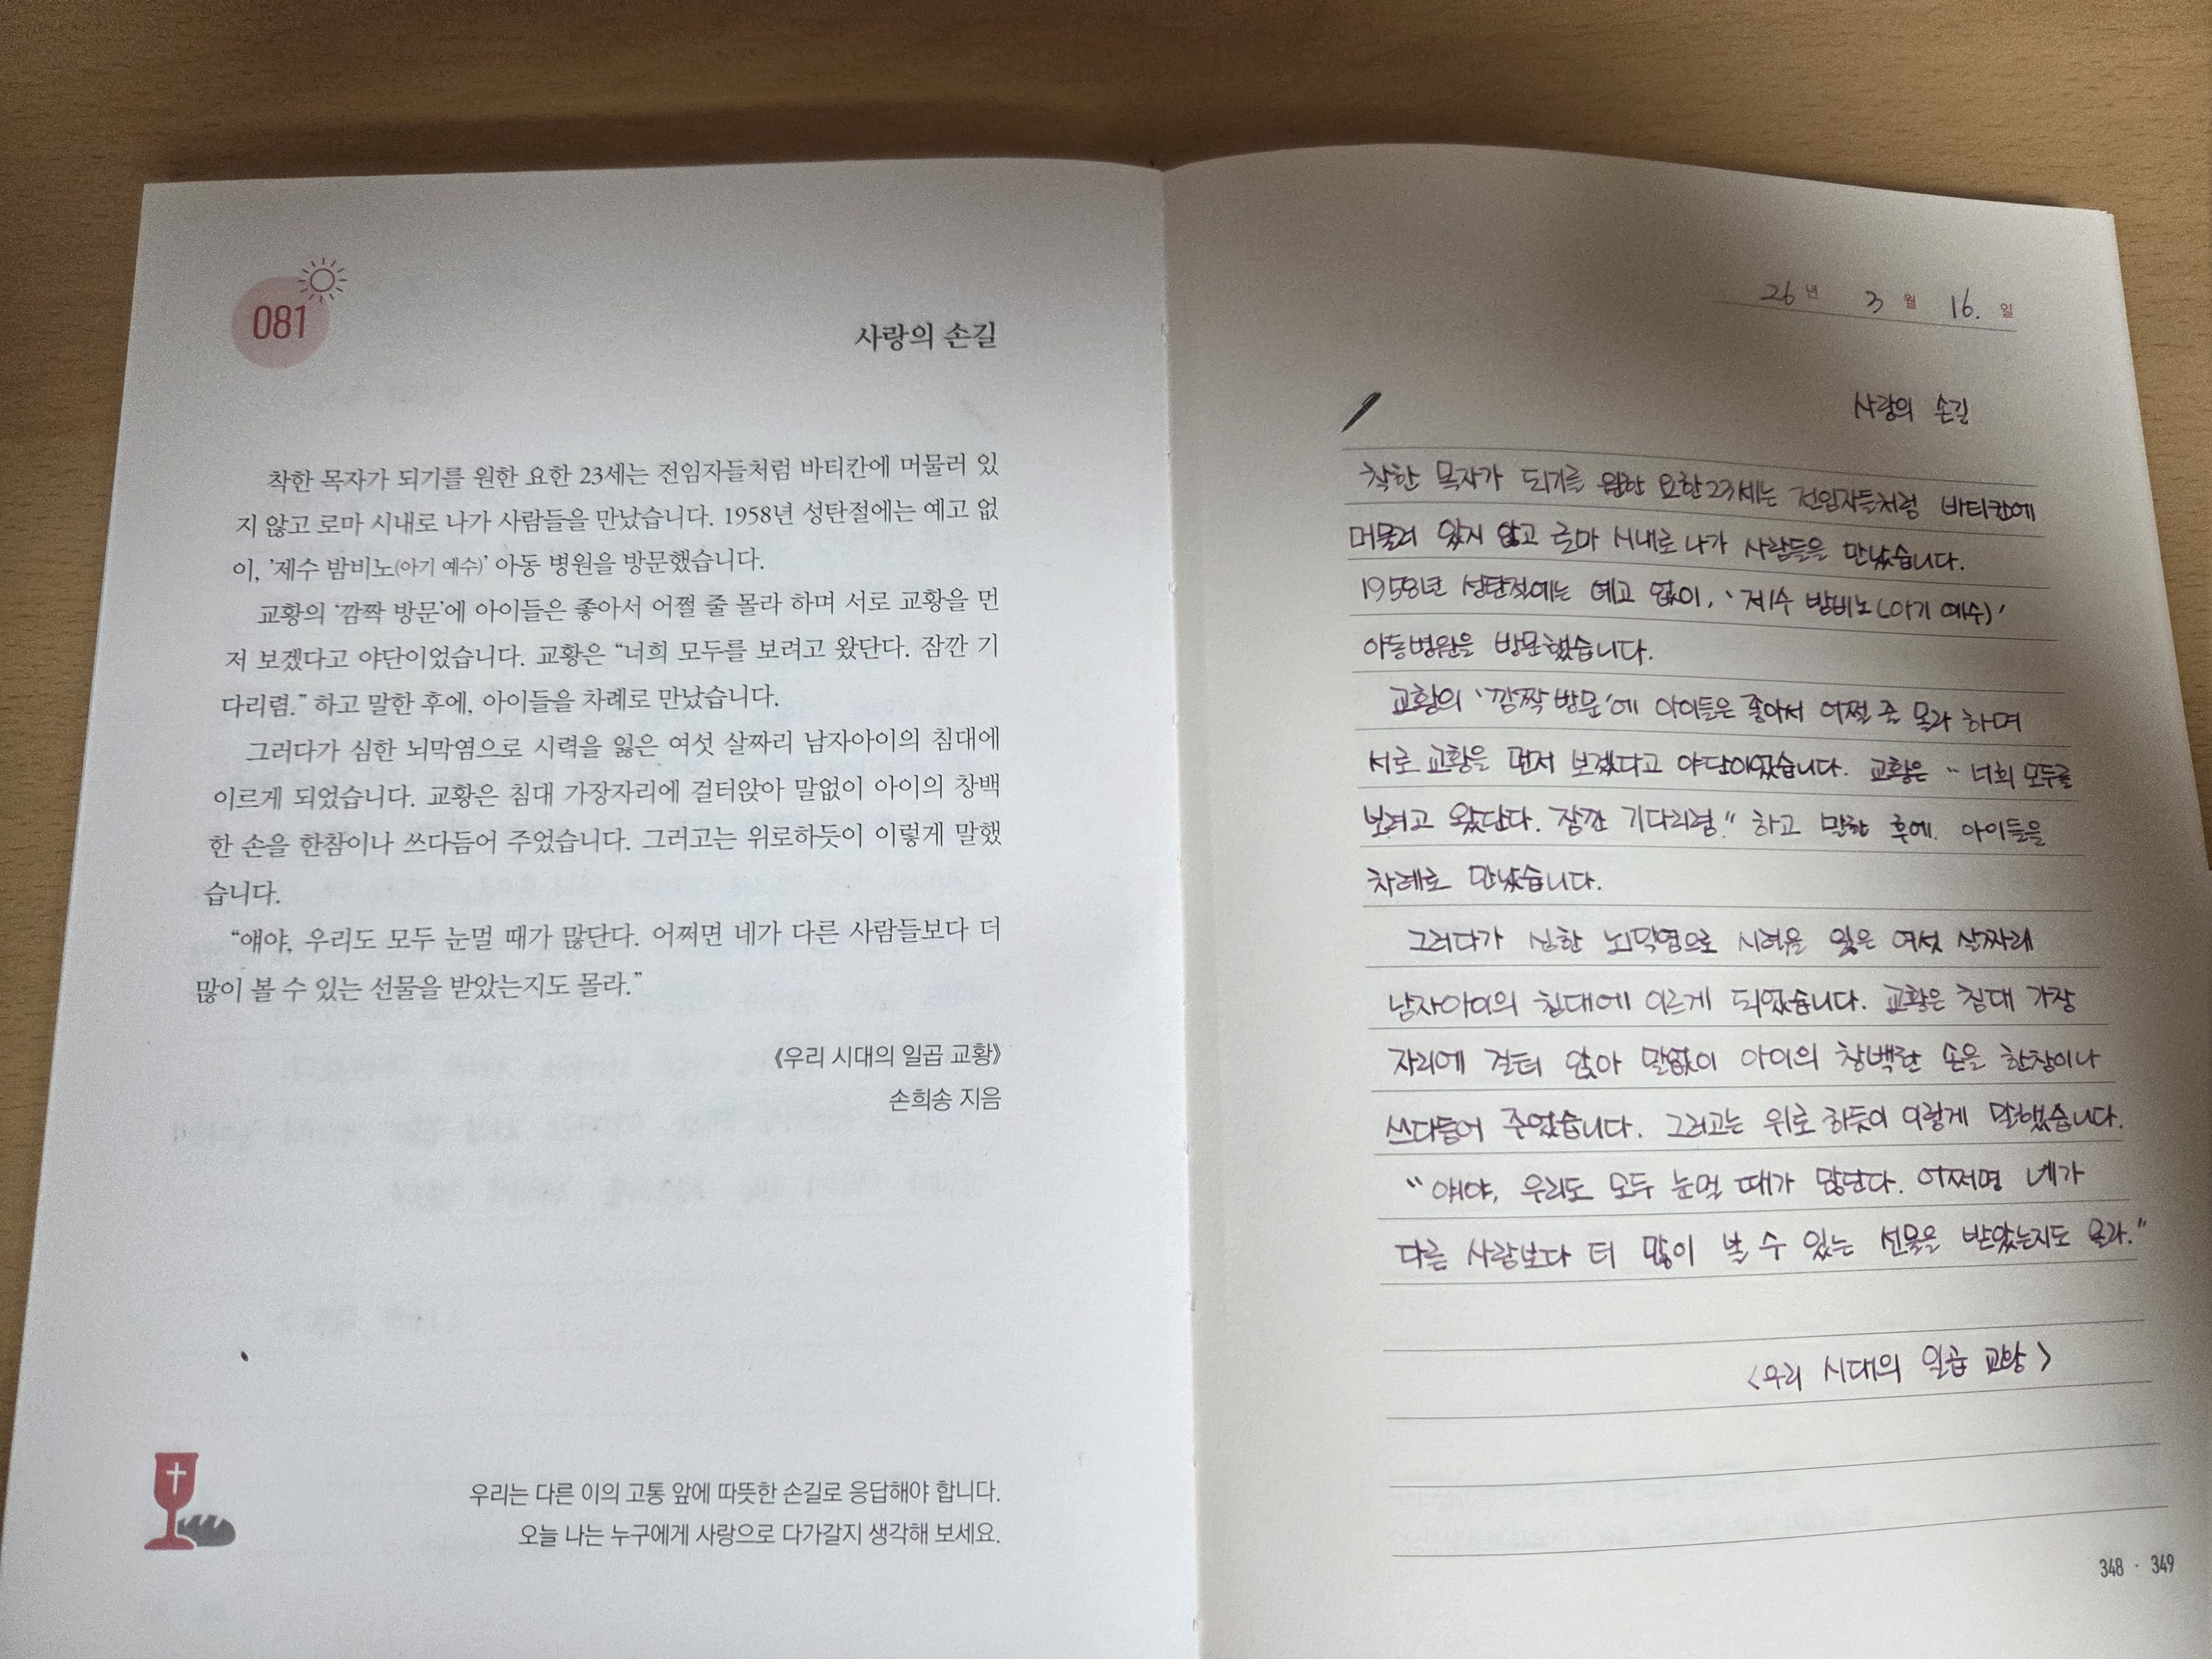 081
사랑의 손길
착한 목자가 되기를 원한 요한 23세는 전임자들처럼 바티칸에 머물러 있
지 않고 로마 시내로 나가 사람들을 만났습니다. 1958년 성탄절에는 예고 없
이, '제수 밤비노(아기 예수)' 아동 병원을 방문했습니다.
교황의 '깜짝 방문'에 아이들은 좋아서 어쩔 줄 몰라 하며 서로 교황을 먼
저 보겠다고 야단이었습니다. 교황은 “너희 모두를 보려고 왔단다. 잠깐 기
다리렴.” 하고 말한 후에, 아이들을 차례로 만났습니다.
그러다가 심한 뇌막염으로 시력을 잃은 여섯 살짜리 남자아이의 침대에
이르게 되었습니다. 교황은 침대 가장자리에 걸터앉아 말없이 아이의 창백
한 손을 한참이나 쓰다듬어 주었습니다. 그러고는 위로하듯이 이렇게 말했
습니다.
“얘야, 우리도 모두 눈멀 때가 많단다. 어쩌면 네가 다른 사람들보다 더
많이 볼 수 있는 선물을 받았는지도 몰라.”
《우리 시대의 일곱 교황》
손희송 지음
우리는 다른 이의 고통 앞에 따뜻한 손길로 응답해야 합니다.
오늘 나는 누구에게 사랑으로 다가갈지 생각해 보세요.
26년 3월 16. 일
사랑의 손길
착한 목자가 되기를 원한 요한23세는 전임자들처럼 바티칸에
머물러 있지 않고 로마 시내로 나가 사람들을 만났습니다.
1958년 성탄절에는 예고 없이, '제수 밤비노(아기 예수)'
아동병원을 방문했습니다.
교황의 '깜짝 방문'에 아이들은 좋아서 어쩔 줄 몰라 하며
서로 교황을 먼저 보겠다고 야단이었습니다. 교황은 “너희 모두를
보려고 왔단다. 잠깐 기다리렴.” 하고 말한 후에. 아이들을
차례로 만났습니다.
그러다가 심한 뇌막염으로 시력을 잃은 여섯 살짜리
남자아이의 침대에 이르게 되었습니다. 교황은 침대 가장
자리에 걸터 앉아 말없이 아이의 창백한 손을 한참이나
쓰다듬어 주었습니다. 그러고는 위로 하듯이 이렇게 말했습니다.
“얘야, 우리도 모두 눈멀 때가 많단다. 어쩌면 네가
다른 사람보다 더 많이 볼 수 있는 선물을 받았는지도 몰라.”
<우리 시대의 일곱 교황>
348 · 349